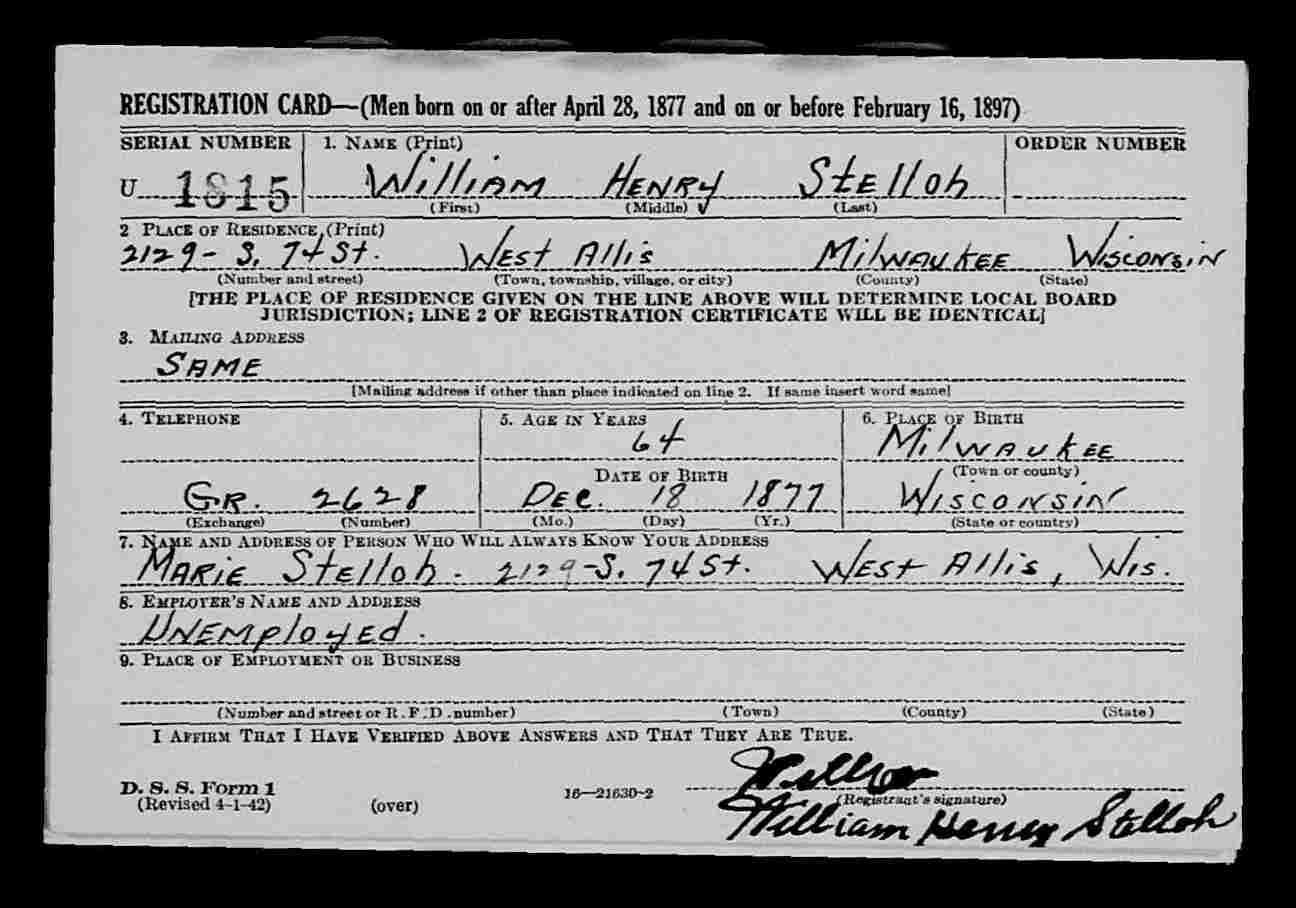 REGISTRATION CARD—(Men born on or after April 28, 1877 and on or before February 16, 1897)
SERIAL NUMBER 1. NAME (Print) ORDER NUMBER
U 1815 William HENRY Stelloh
(First) (Middle) (Last)
2 PLACE OF RESIDENCE (Print)
2129- S. 74 St. West Allis Milwaukee Wisconsin
(Number and street) (Town, township, village, or city) (County) (State)
[THE PLACE OF RESIDENCE GIVEN ON THE LINE ABOVE WILL DETERMINE LOCAL BOARD
JURISDICTION; LINE 2 OF REGISTRATION CERTIFICATE WILL BE IDENTICAL]
3. MAILING ADDRESS
SAME
[Mailing address if other than place indicated on line 2. If same insert word same]
4. TELEPHONE 5. AGE IN YEARS 6. PLACE OF BIRTH
64 Milwaukee
DATE OF BIRTH (Town or county)
GR. 2628 DEC. 18 1877 WISCONSIN
(Exchange) (Number) (Mo.) (Day) (Yr.) (State or country)
7. NAME AND ADDRESS OF PERSON WHO WILL ALWAYS KNOW YOUR ADDRESS
MARIE Stelloh. 2129-S. 74 St. West Allis, Wis.
8. EMPLOYER'S NAME AND ADDRESS
UNEMployed.
9. PLACE OF EMPLOYMENT OR BUSINESS
(Number and street or R. F. D. number) (Town) (County) (State)
I AFFIRM THAT I HAVE VERIFIED ABOVE ANSWERS AND THAT THEY ARE TRUE.
D. S. S. Form 1
(Revised 4-1-42) (over) 16—21630-2 (Registrant's signature)
William Henry Stelloh